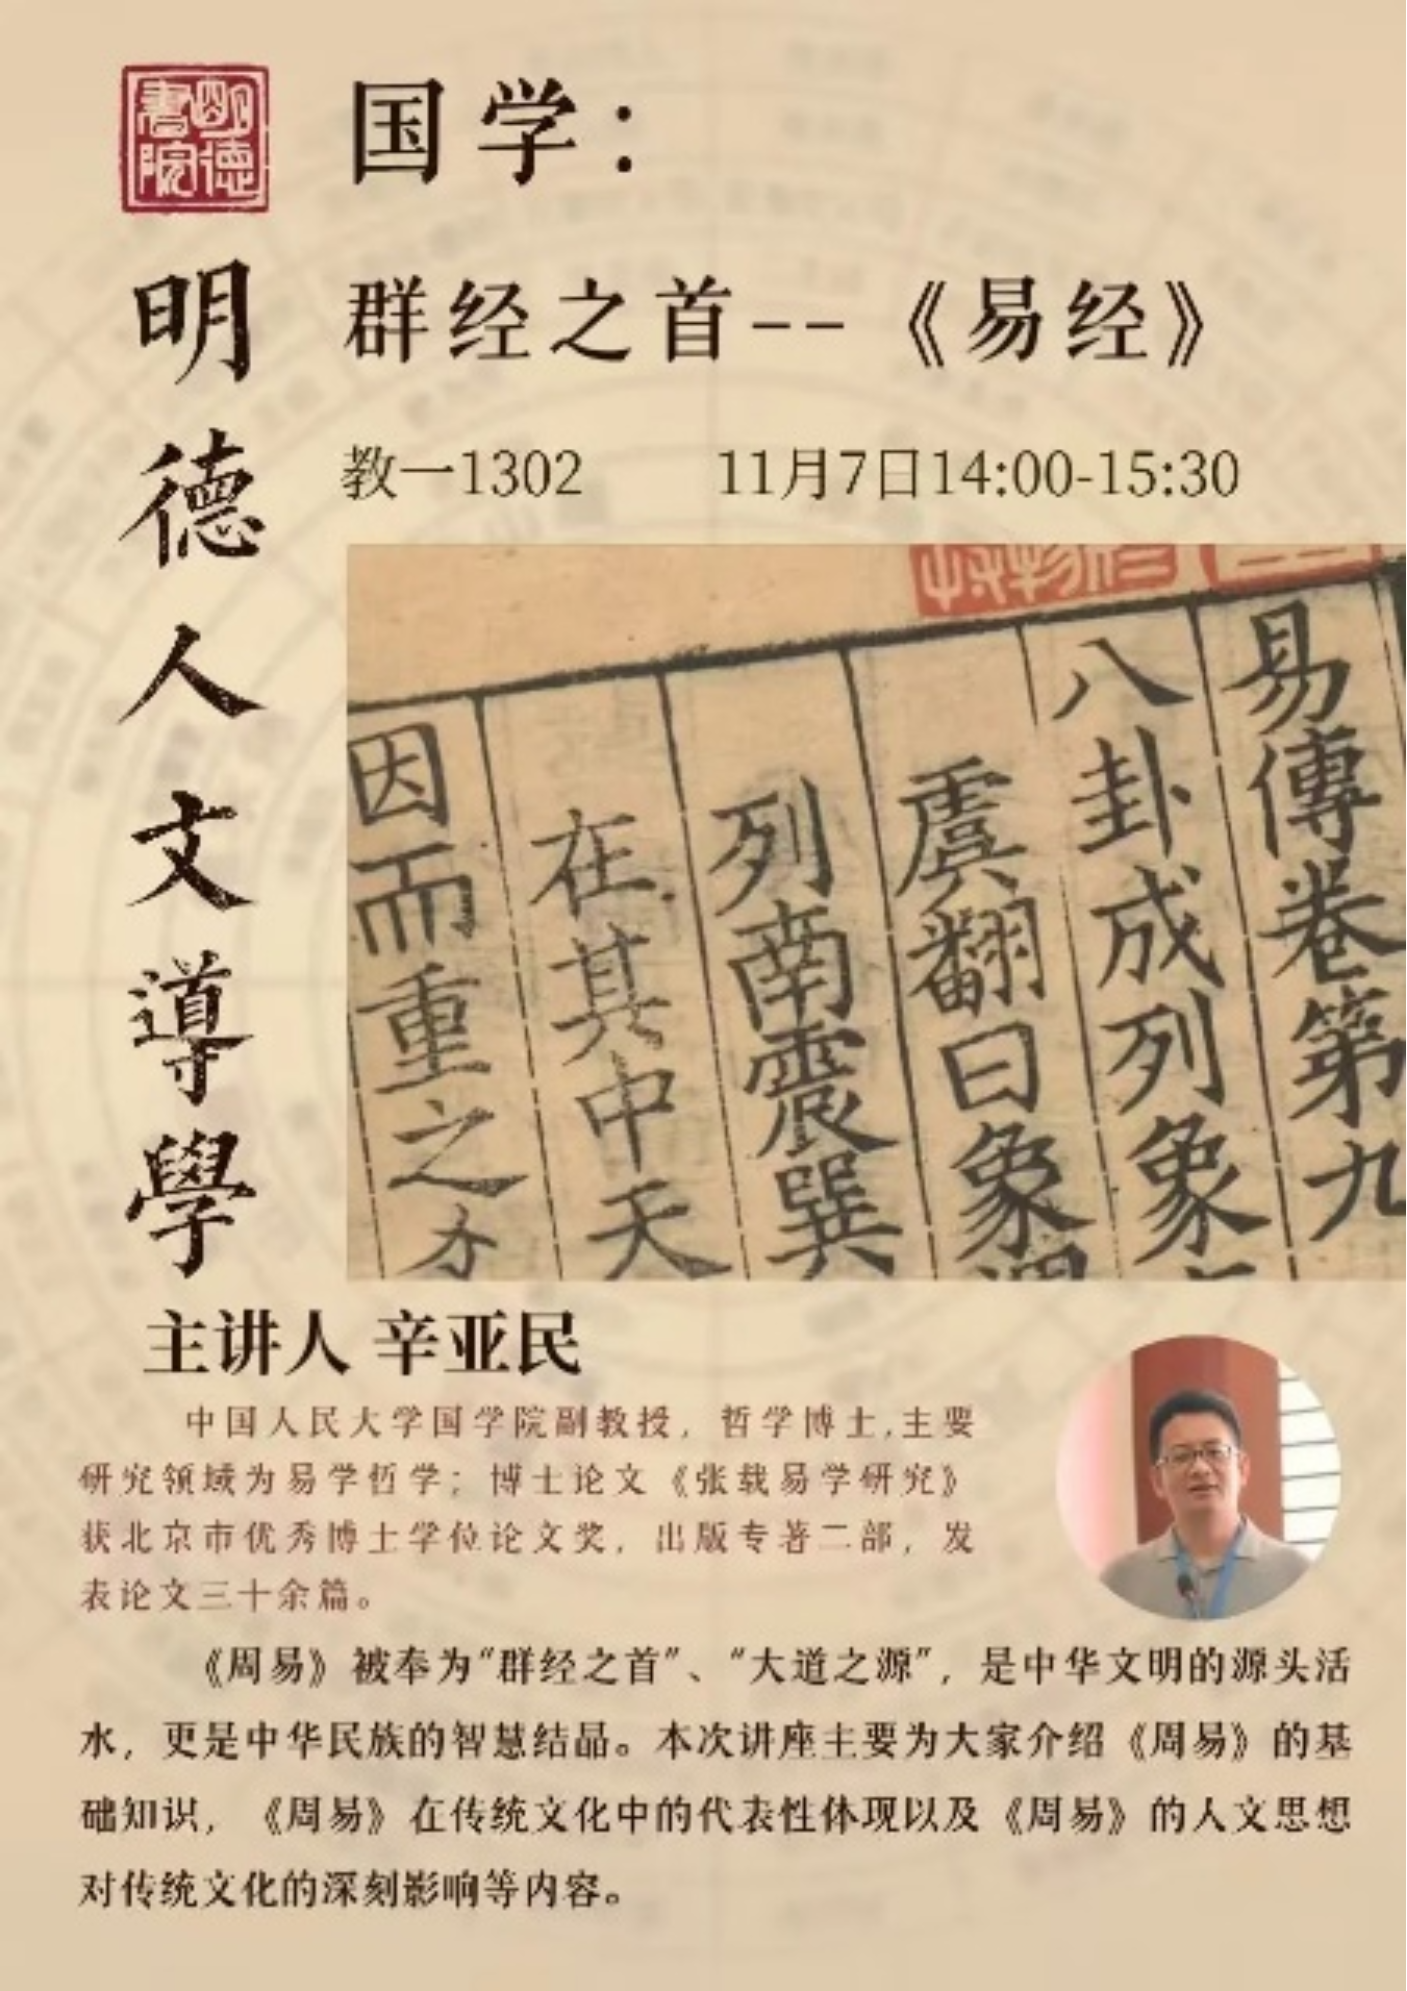 明德書院
国学：
群经之首--《易经》
教一1302 11月7日14:00-15:30
明德人文導學
易傳卷第九
八卦成列象
虞翻曰象
列南震巽
在其中天
因而重之
主讲人 辛亚民
中国人民大学国学院副教授，哲学博士,主要
研究领域为易学哲学；博士论文《张载易学研究》
获北京市优秀博士学位论文奖，出版专著二部，发
表论文三十余篇。
《周易》被奉为“群经之首”、“大道之源”，是中华文明的源头活
水，更是中华民族的智慧结晶。本次讲座主要为大家介绍《周易》的基
础知识，《周易》在传统文化中的代表性体现以及《周易》的人文思想
对传统文化的深刻影响等内容。